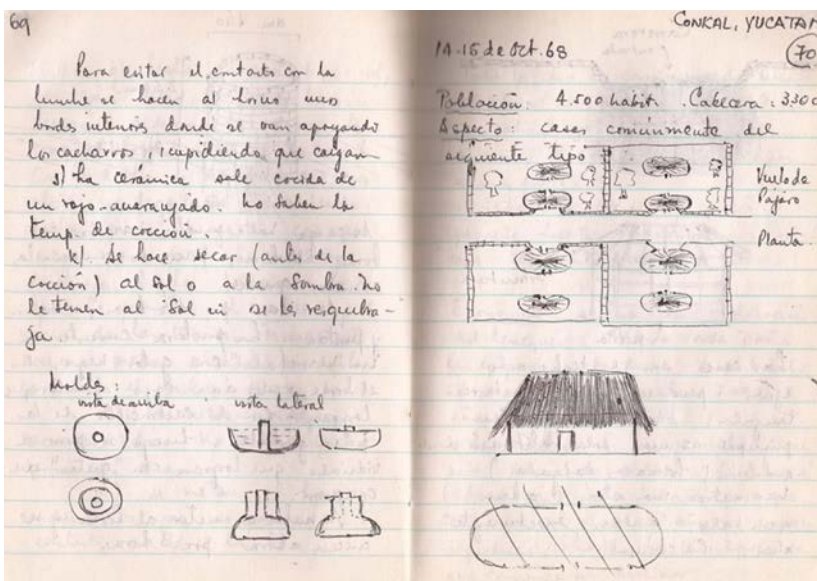 69
Para evitar el contacto con la
lumbre se hacen al horno unos
bordes interiores donde se van apoyando
los cacharros, impidiendo que caigan
j) La cerámica sale cocida de
un rojo-anaranjado. No saben la
temp. de cocción.
k) Se hace secar (antes de la
cocción) al sol o a la sombra. No
le temen al sol ni se les resquebra-
ja
Moldes:
vista de arriba
vista lateral
CONKAL, YUCATAN
14-15 de Oct. 68
70
Población: 4.500 habit. Cabecera: 3300
Aspecto: casas comúnmente del
siguiente tipo
Vuelo de
Pájaro
Planta.